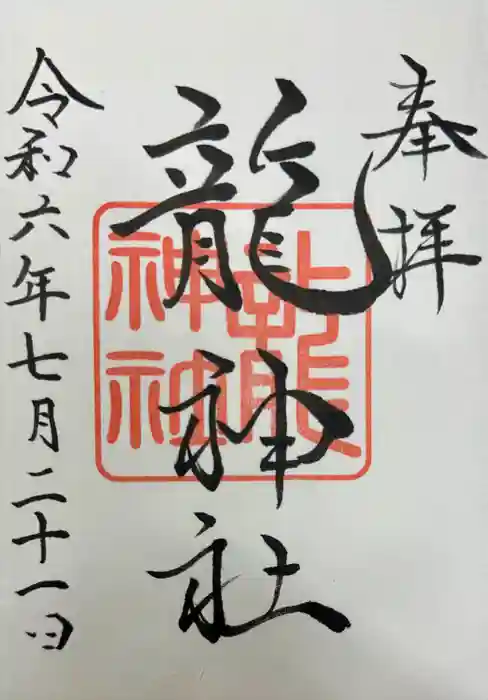 奉拝
龍神社
龍神社
令和六年七月二十一日